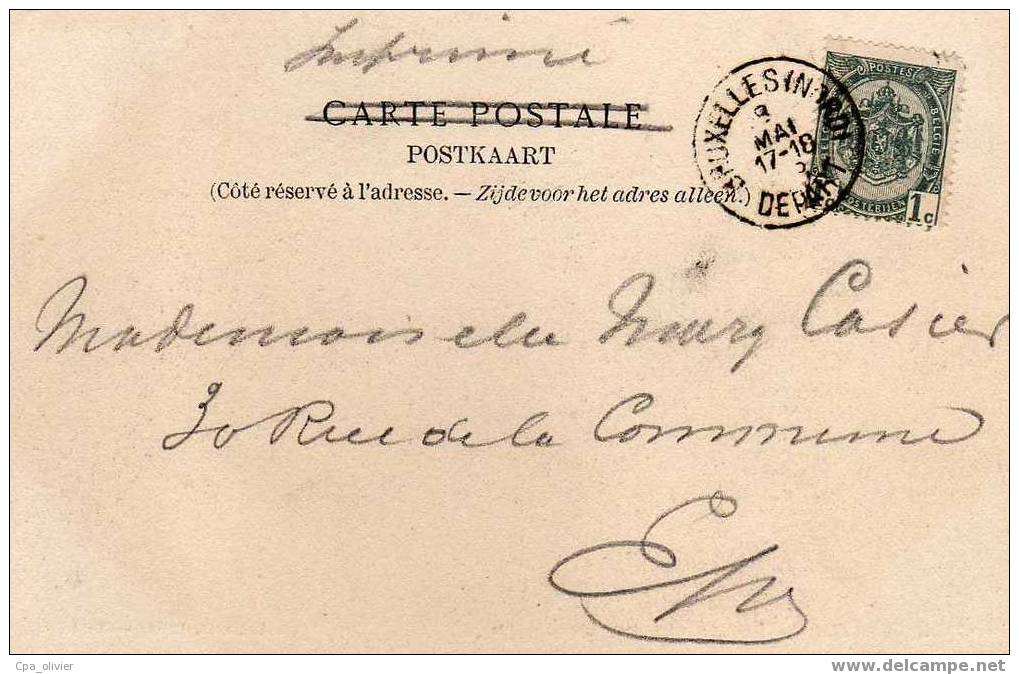 Imprimé
CARTE POSTALE
POSTKAART
(Côté réservé à l'adresse. — Zijde voor het adres alleen.)
BRUXELLES (MIDI)
8
MAI
17-18
DEPART
POSTES
BELGIQUE
BELGIE
POSTERIJEN
1c
Mademoiselle Mary Casier
30 Rue de la Commune
E/V
Cpa_olivier
www.delcampe.net